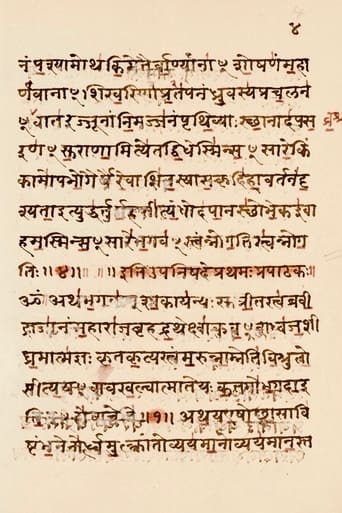 ४
नं पश्यामोथ किमेतैर्वान्यानां ५ शोषणं महा
र्णवानां ५ शिखरिणां प्रपतनं ध्रुवस्य प्रचलनं
५ वातरज्जूनां निमज्जनं पृथिव्याः स्थानादपस
रणं ५ सुराणामित्येतद्विधेस्मिन्स ५ सारे किं
कामोपभोगैर्यैरेवाशितस्यासकृदिहावर्तनं दृ
श्यत इत्युद्धर्तुमर्हसीत्यंधोदपानस्थो भेक इवा
हमस्मिन्स ५ सारे भगवंस्त्वं नो गतिस्त्वं नो ग
तिः ॥ ४ ॥ ॥ इति उपनिषदे प्रथमः प्रपाठकः ॥
ॐ अथ भगवान् शाकायन्यः सुप्रीतस्त्वब्रवी
द्राजानं महाराज बृहद्रथेक्ष्वाकुवं ५ शध्वजशी
घ्रमात्मज्ञः कृतकृत्यस्त्वं मरुन्नाम्नेति विश्रुतो
सीत्ययं वाव खल्वात्मा ते यः कतमो भगव इ
ति तं होवाचेति ॥ १ ॥ अथ य एषोच्छ्वासावि
ष्टंभनेनोर्ध्वमुत्क्रांतो व्ययमानोव्ययमानस्त